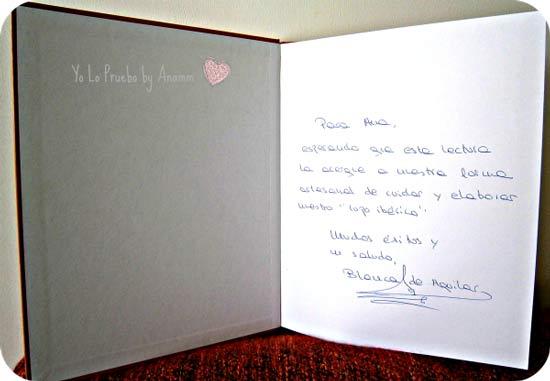 Yo Lo Pruebo by Anamm
Para Ana,
esperando que esta lectura
la acerque a nuestra forma
artesanal de cuidar y elaborar
nuestro "lujo ibérico".
Muchos éxitos y
un saludo,
Blanca de Aguilar